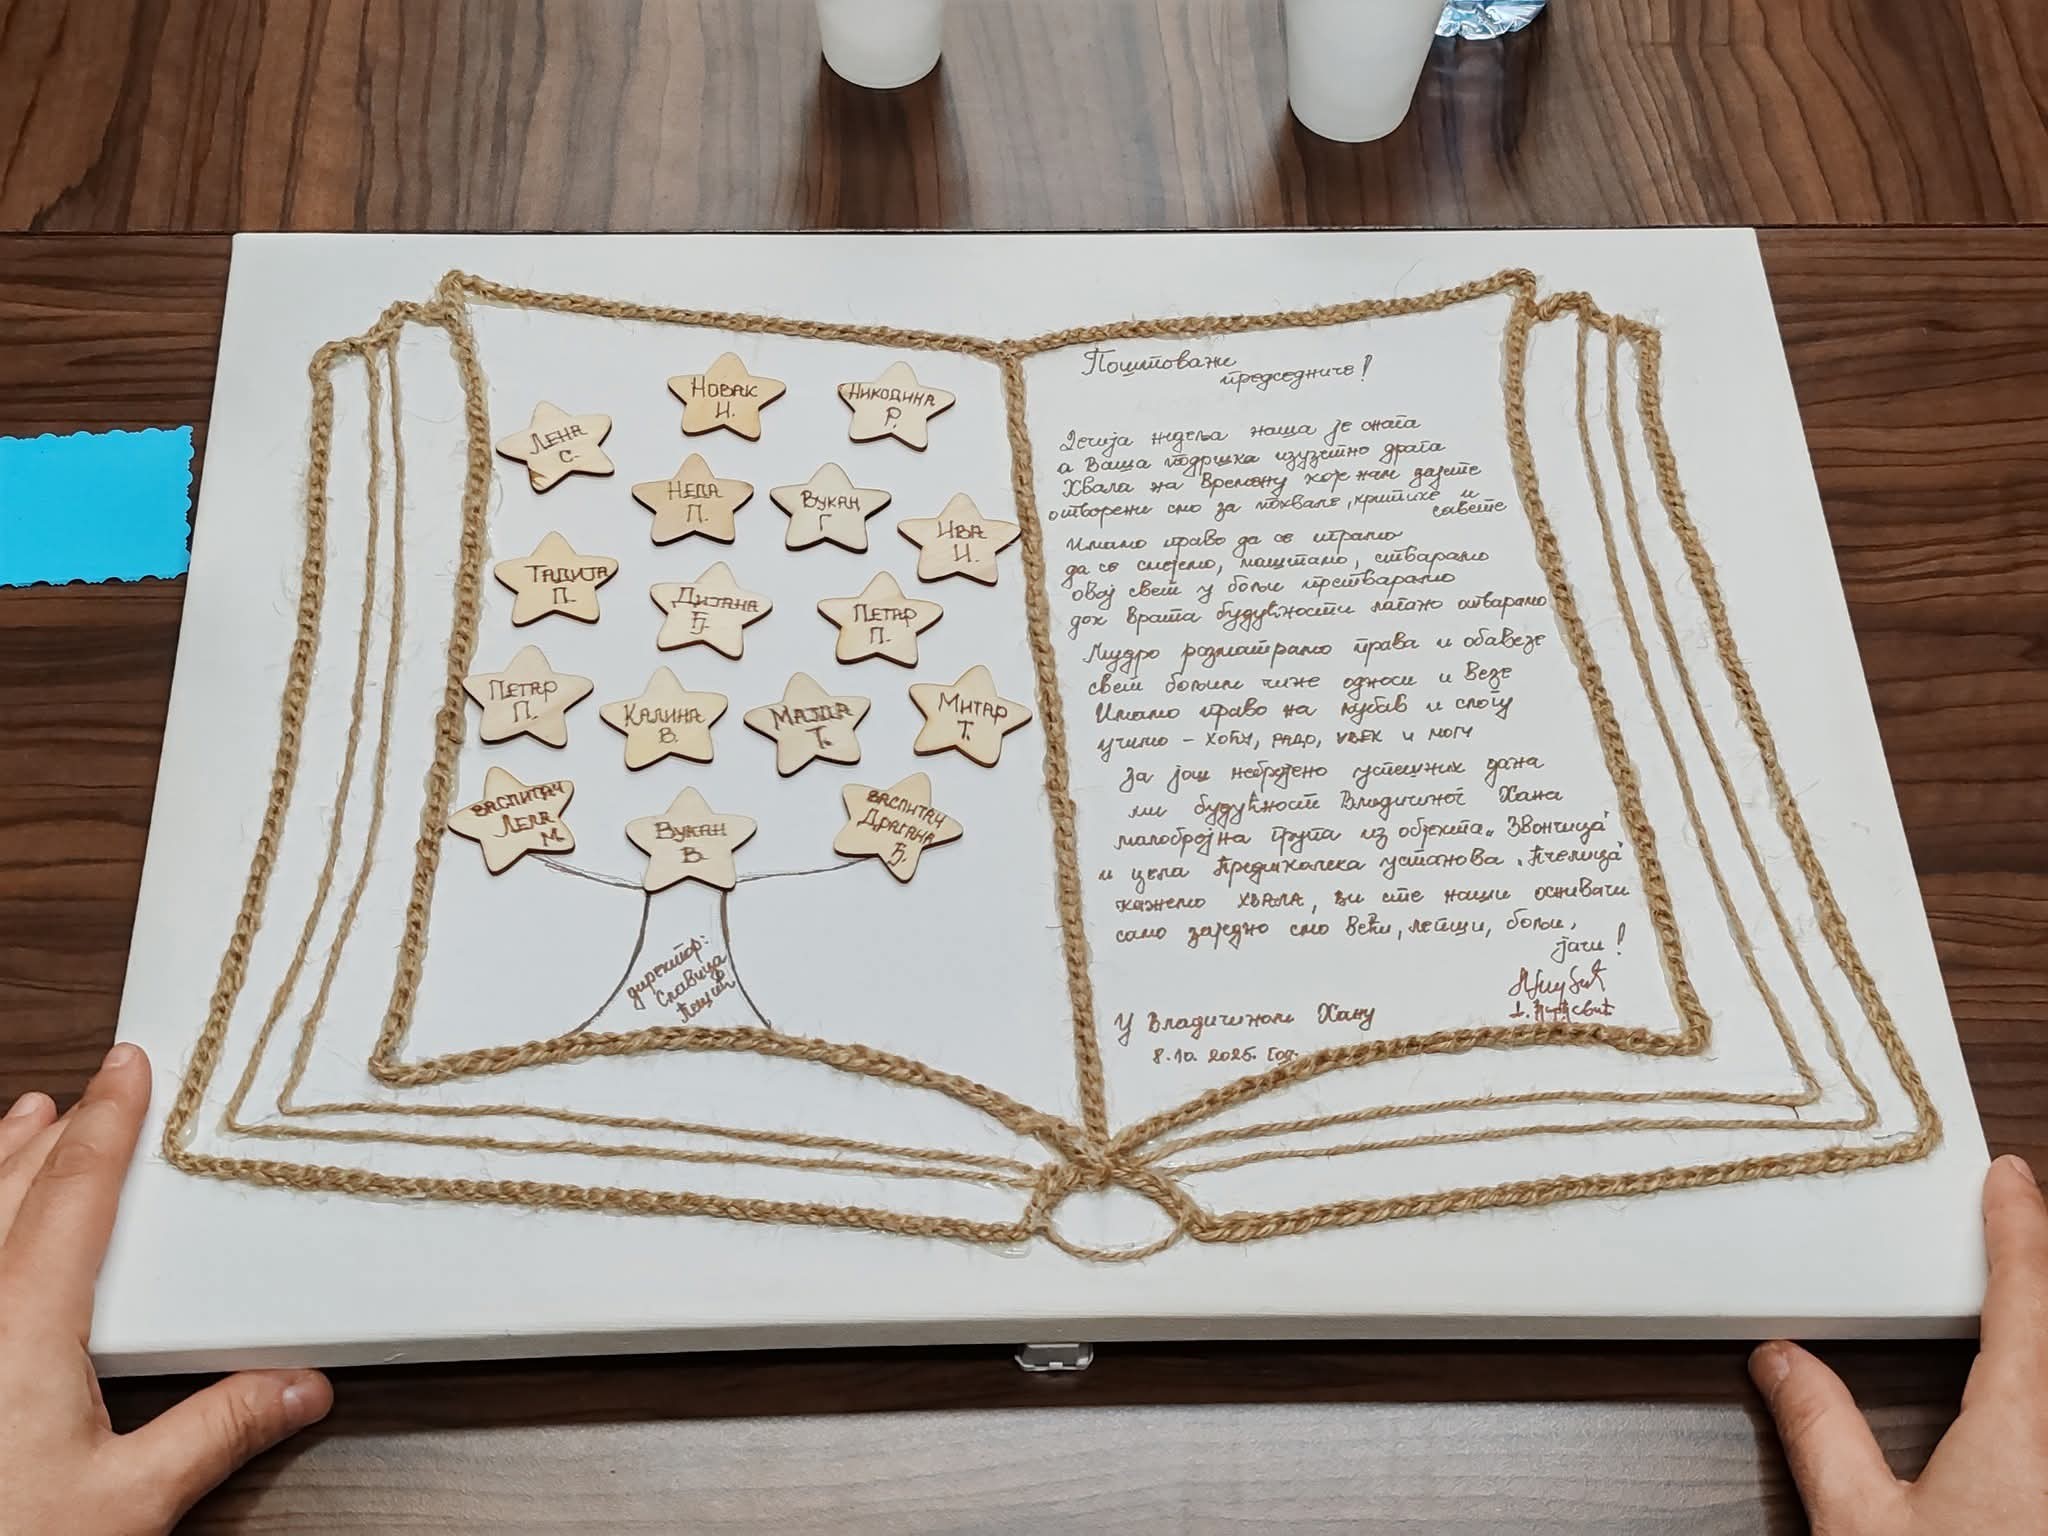 Новак
И.
Никодина
Р.
Лена
С.
Неда
П.
Вукан
Г.
Ива
И.
Тадија
П.
Дијана
Ђ.
Петар
П.
Петар
П.
Калина
В.
Мајда
Т.
Митар
Т.
Васпитач
Лела
М.
Вукан
В.
Васпитач
Драгана
Ђ.
директор:
Славица
Пешић
Поштовани
председниче!
Дечија недеља наша је снага
а Ваша подршка изузетно драга
Хвала на времену које нам дајете
отворени смо за похвале, критике и
савете
Имамо право да се играмо
да се смејемо, маштамо, стварамо
овај свет у бољи претварамо
док врата будућности лагано отварамо
Мудро разматрамо права и обавезе
свет бољим чине односи и везе
Имамо право на љубав и слогу
учимо - хоћу, радо, увек и могу
За још небројено успешних дана
ми будућност Владичиног Хана
малобројна група из објекта "Звончица"
и цела Предшколска установа "Пчелица"
кажемо ХВАЛА, ви сте наши оснивачи
само заједно смо већи, лепши, бољи,
јачи!
У Владичином Хану
8.10.2025. год.